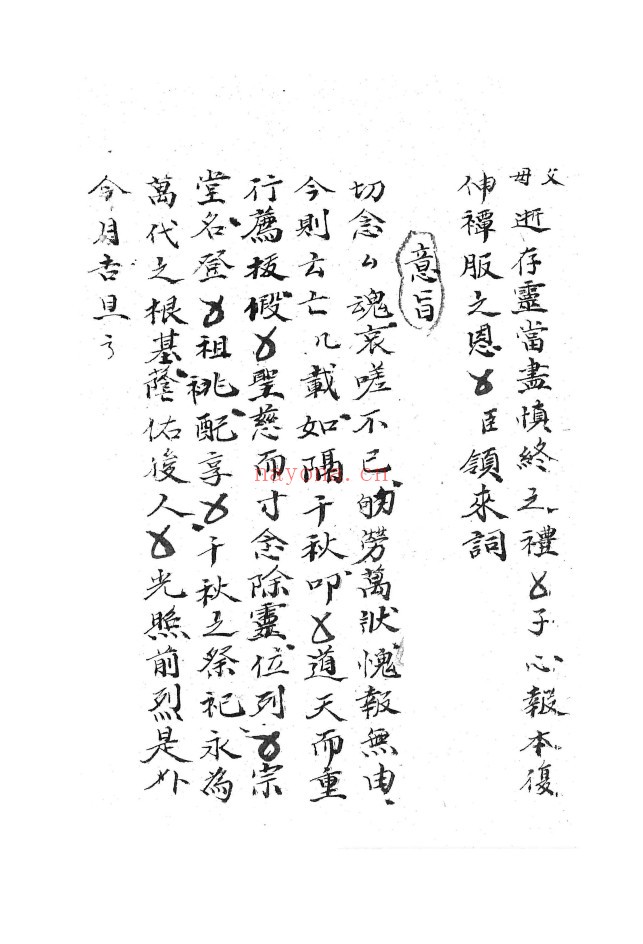 父母逝存靈當盡慎終之禮〤子心報本復
伸禫服之恩〤臣領來詞
意旨
切念厶魂哀嗟不已劬勞萬狀愧報無由
今則云亡几載如隔千秋叩〤道天而重
行薦拔假〤聖慈而寸念除靈位列〤宗
堂名登〤祖祧配享〤千秋之祭祀永為
萬代之根基蔭佑後人〤光照前烈是以
今月吉旦
nayona.cn